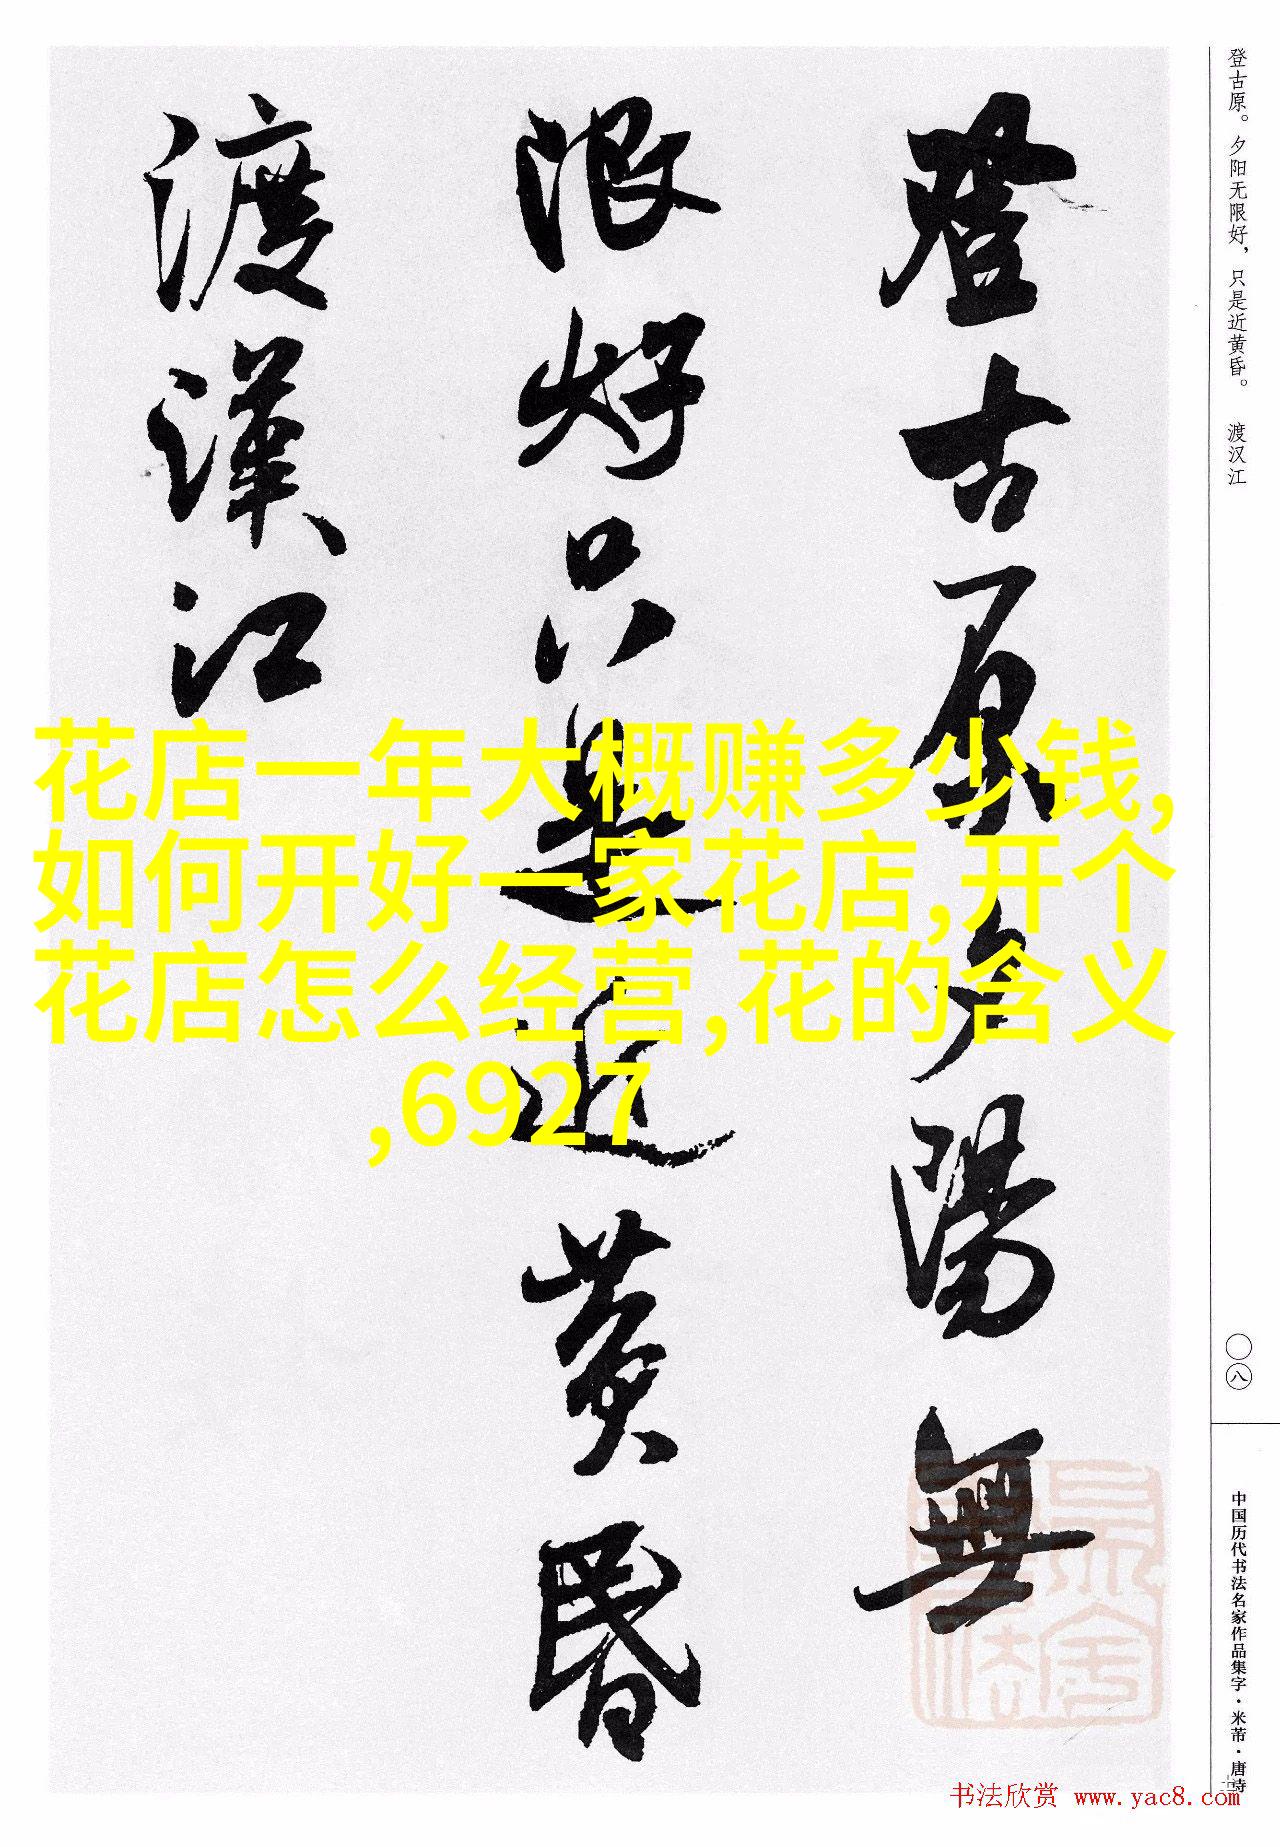 登古原。夕阳无限好，只是近黄昏。 渡汉江
登古原夕陽無
限好只是近黄昏
渡漢江
花店一年大概赚多少钱,
如何开好一家花店,开个
花店怎么经营,花的含义
,6927
〇八
中国历代书法名家作品集字·米芾·唐诗
书法欣赏 www.yac8.com